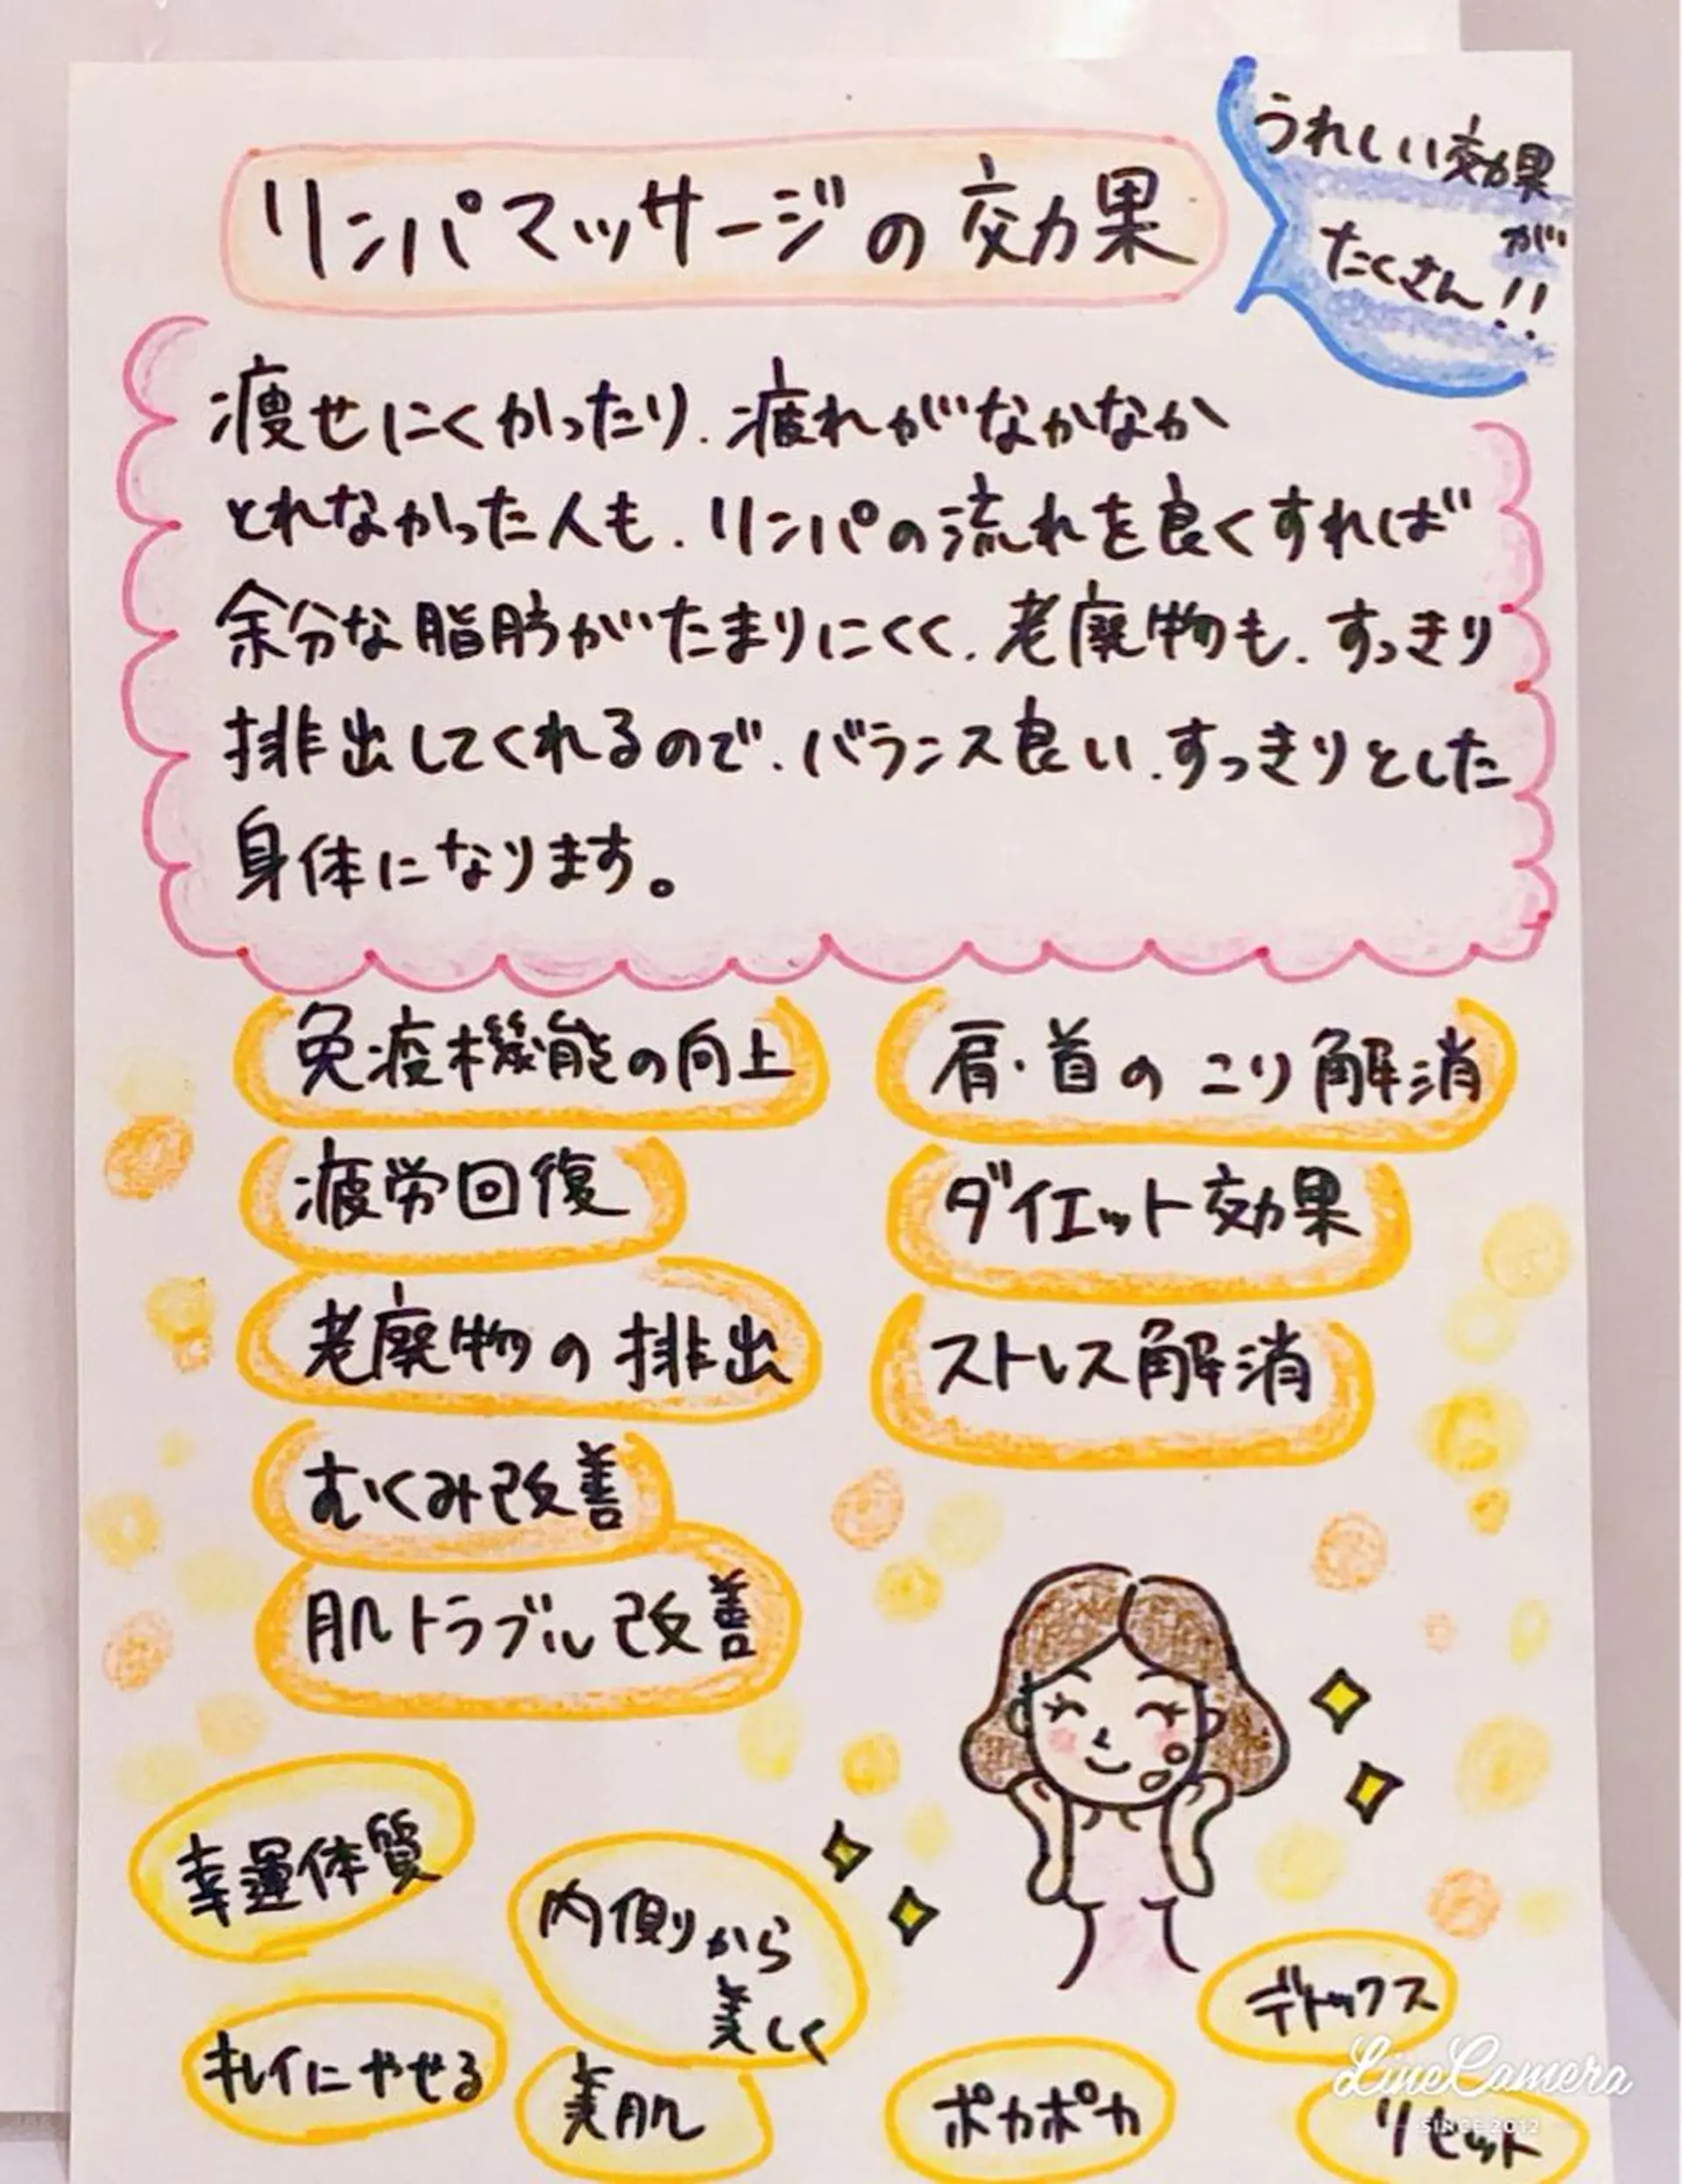 リンパマッサージの効果
うれしい効果
が
たくさん!!
痩せにくかったり、疲れがなかなか
とれなかった人も、リンパの流れを良くすれば
余分な脂肪がたまりにくく、老廃物も、すっきり
排出してくれるので、バランス良い、すっきりとした
身体になります。
免疫機能の向上
疲労回復
老廃物の排出
むくみ改善
肌トラブル改善
肩・首のこり解消
ダイエット効果
ストレス解消
幸運体質
内側から
美しく
デトックス
キレイにやせる
美肌
ポカポカ
リセット
LineCamera
SINCE 2012